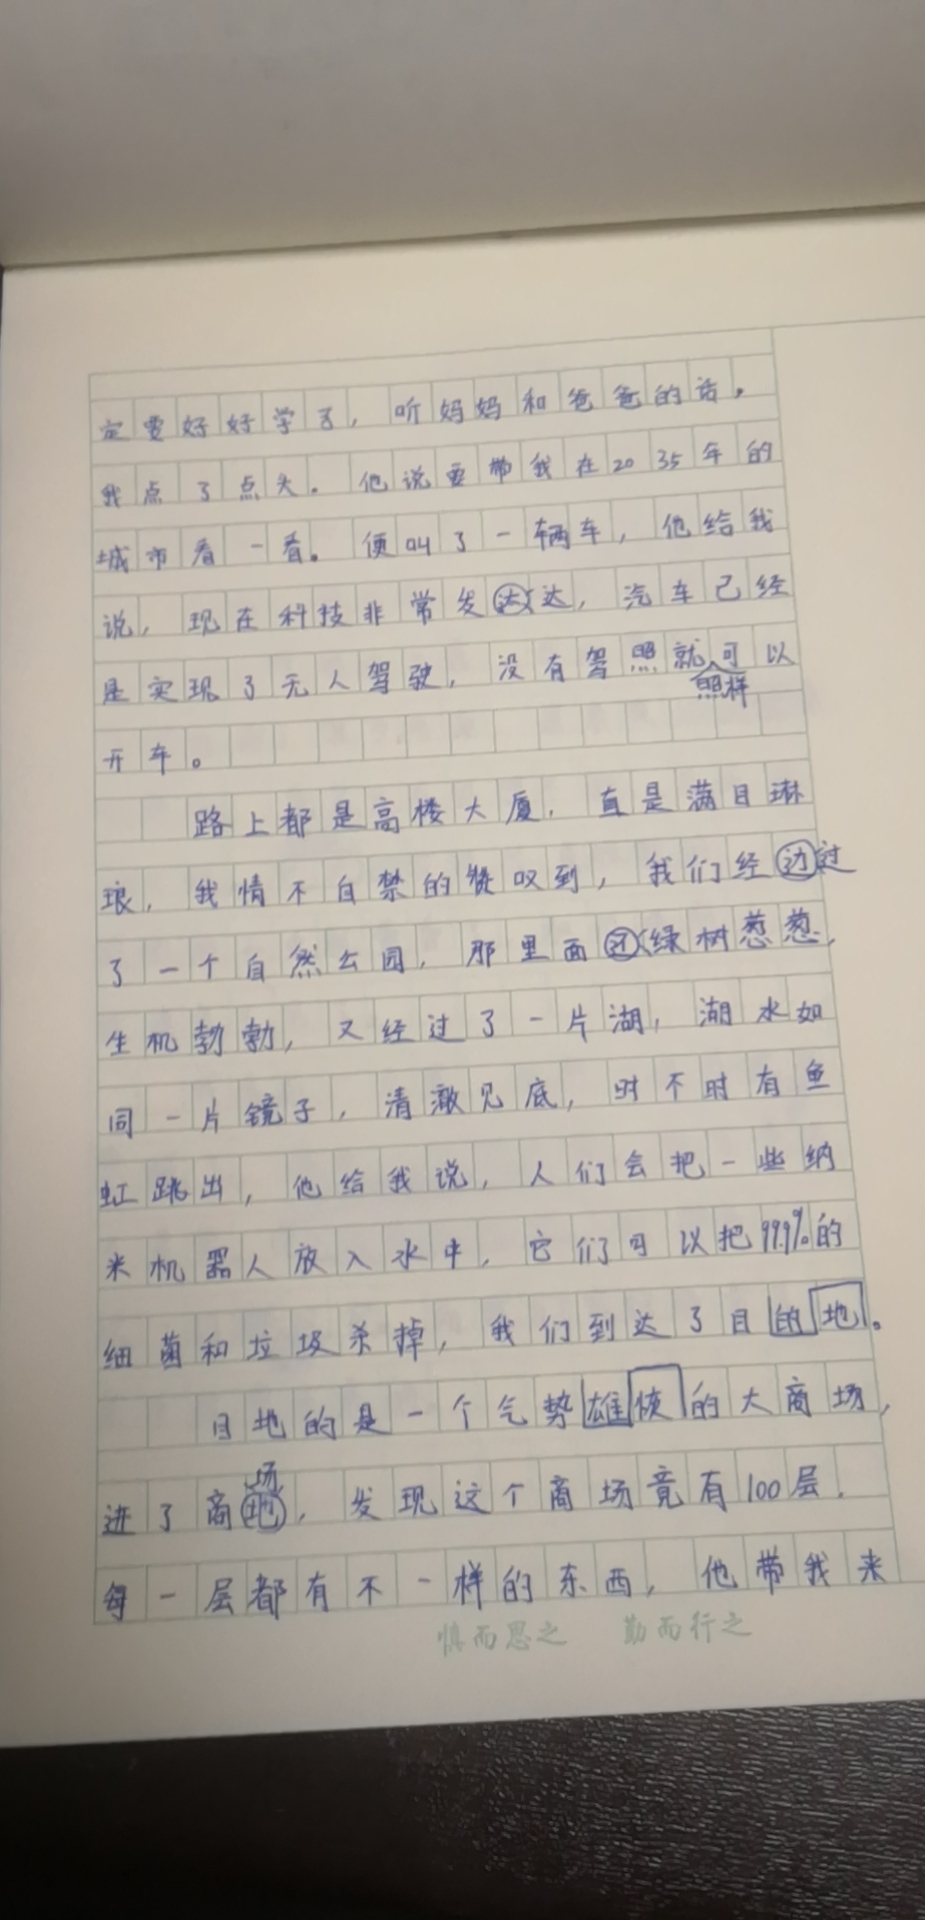 定要好好学习，听妈妈和爸爸的话。
我点了点头。他说要带我在2035年的
城市看一看。便叫了一辆车，他给我
说，现在科技非常发达达，汽车已经
是实现了无人驾驶，没有驾照就可以
照样
开车。
路上都是高楼大厦，直是满目琳
琅，我情不自禁的赞叹到，我们经边过
了一个自然公园，那里面绿树葱葱，
生机勃勃，又经过了一片湖，湖水如
同一片镜子，清澈见底，时不时有鱼
虹跳出，他给我说，人们会把一些纳
米机器人放入水中，它们可以把99.9%的
细菌和垃圾杀掉，我们到达了目的地。
目地的是一个气势雄的大商场，
场
进了商地，发现这个商场竟有100层，
每一层都有不一样的东西，他带我来
慎而思之 勤而行之